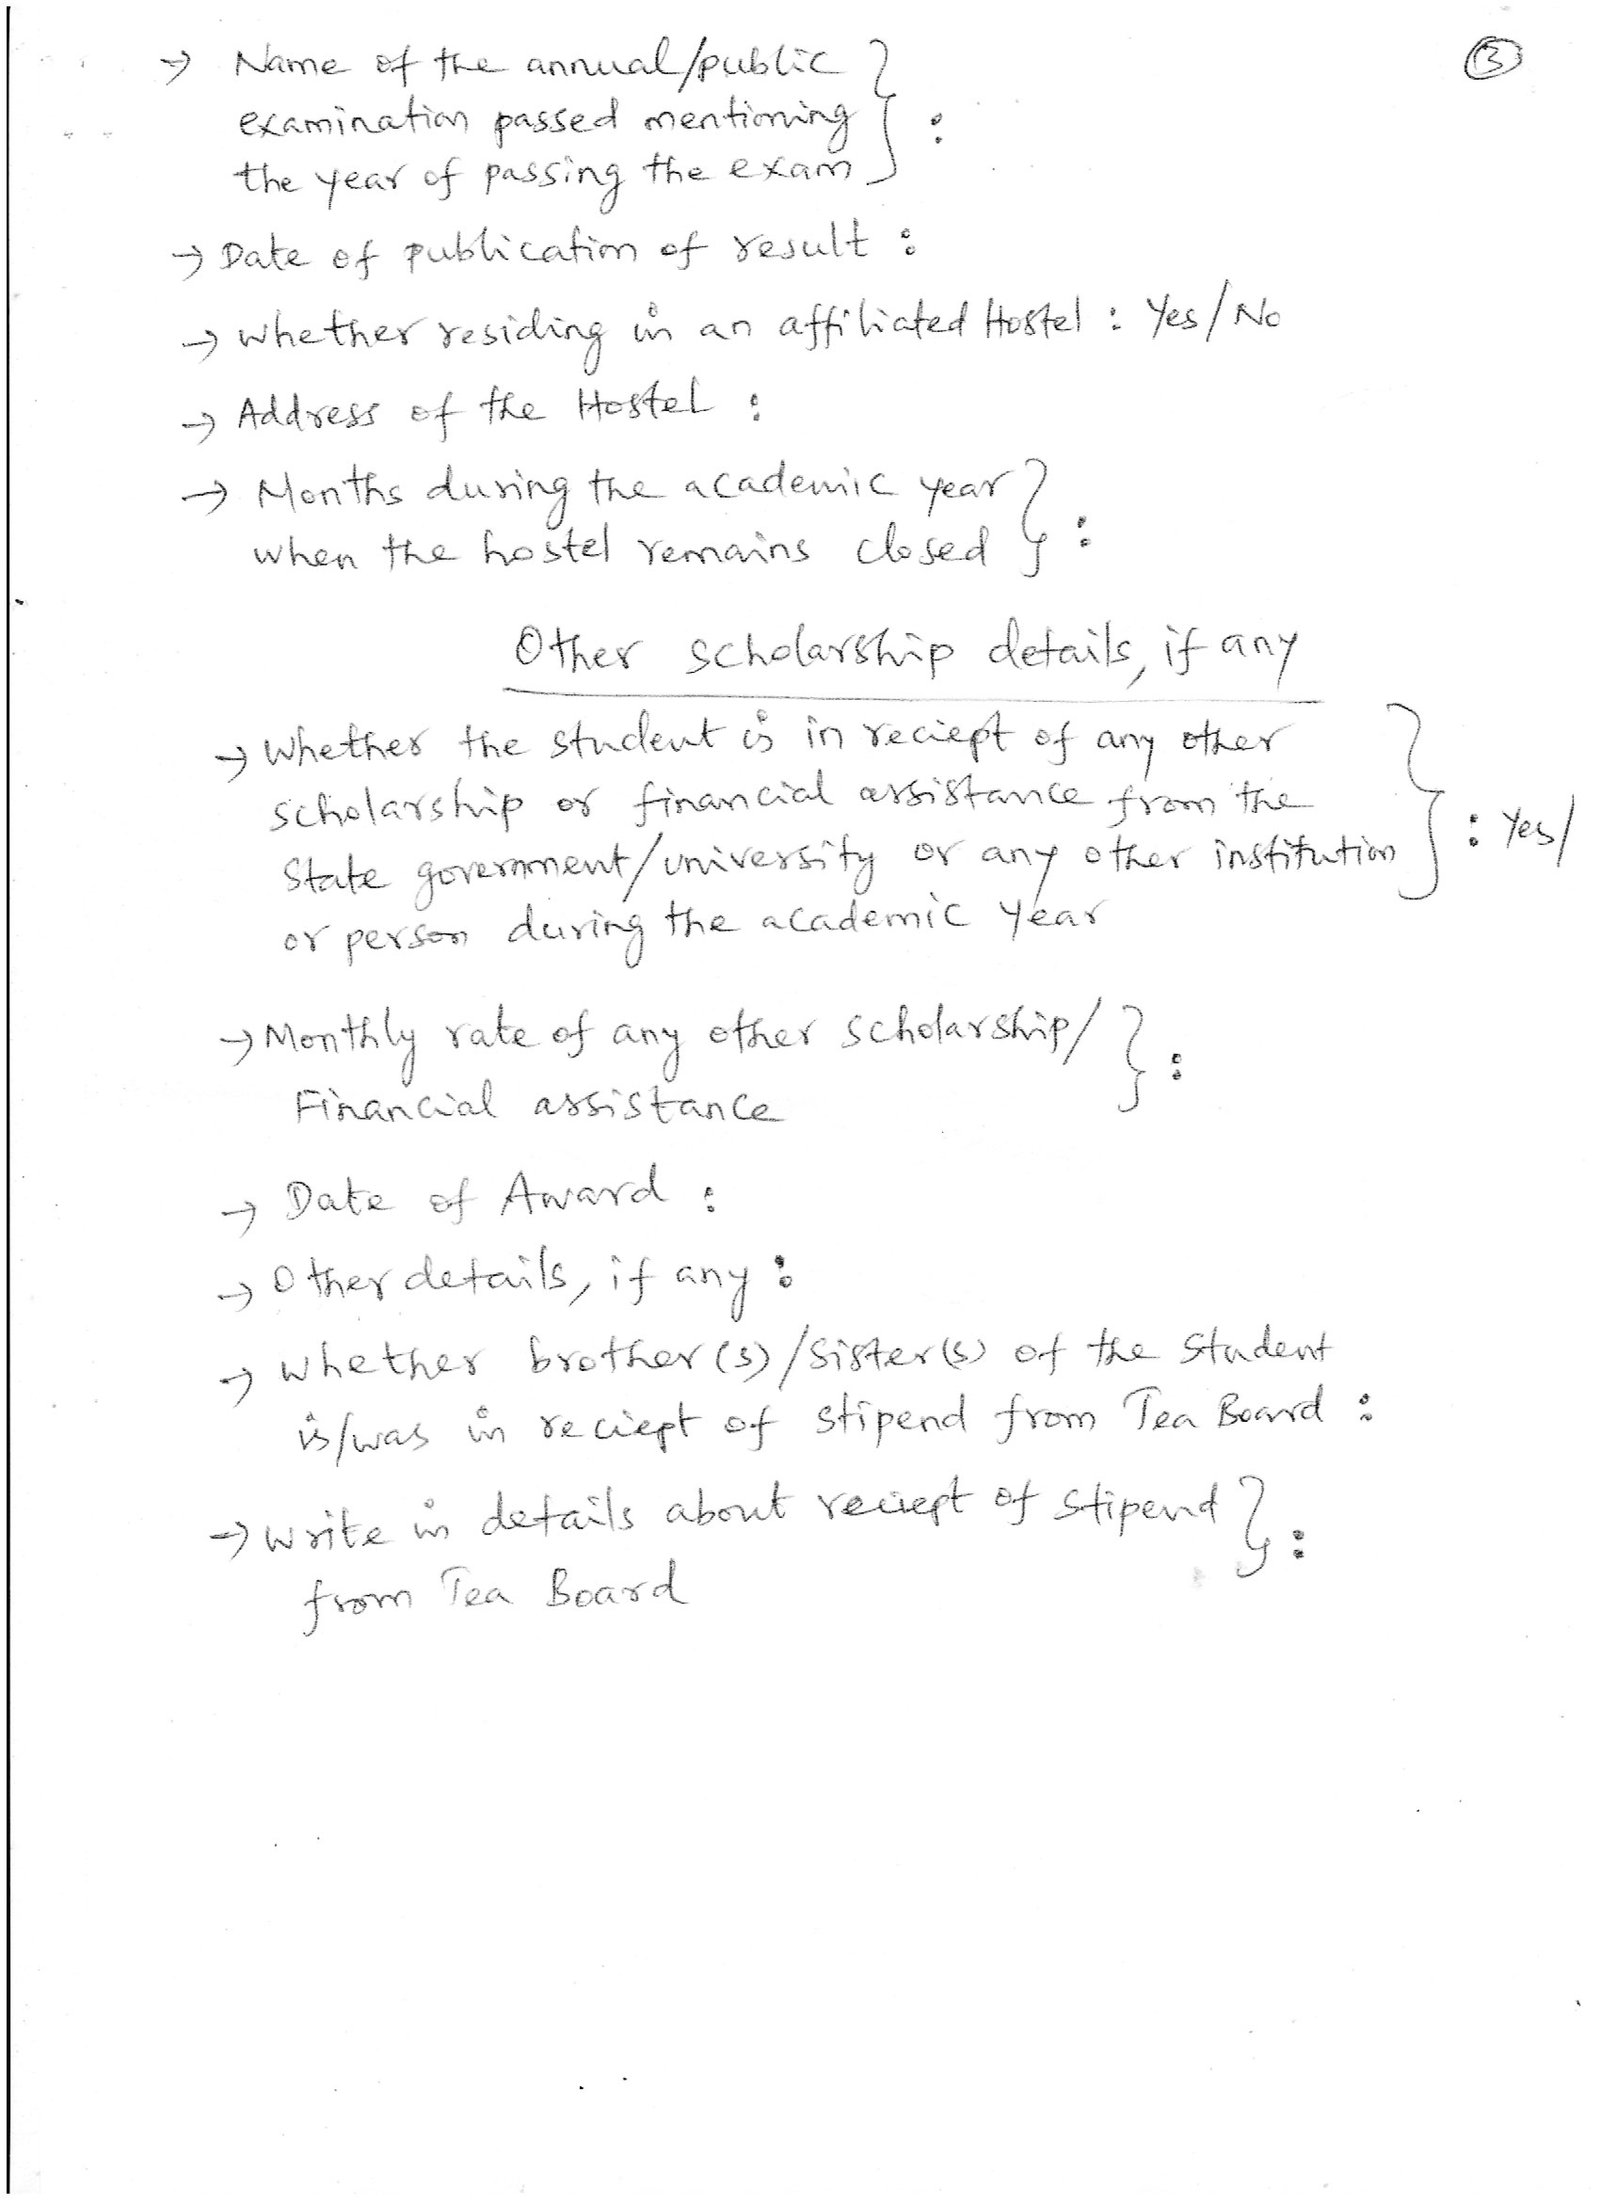 ③
→ Name of the annual/public
examination passed mentioning
the year of passing the exam } :
→ Date of publication of result :
→ Whether residing in an affiliated Hostel : Yes/No
→ Address of the Hostel :
→ Months during the academic year
when the hostel remains closed } :
Other scholarship details, if any
→ Whether the student is in reciept of any other
scholarship or financial assistance from the
State government/university or any other institution } : Yes/
or person during the academic year
→ Monthly rate of any other scholarship/ } :
Financial assistance
→ Date of Award :
→ Other details, if any :
→ Whether brother(s)/Sister(s) of the Student
is/was in reciept of stipend from Tea Board :
→ Write in details about reciept of stipend } :
from Tea Board